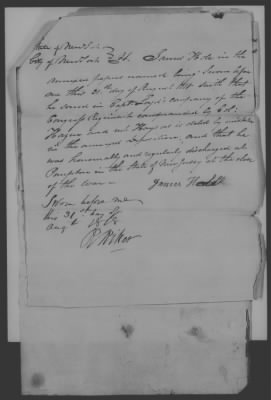 State of New York
City of New York ss. James Hole in the
annexed papers named being Sworn before
me this 31st day of August 1818 saith that
he served in Capt company of the
Congress Regiment commanded by Col.
Hazen and not as is stated by mistake
in the annexed deposition, and that he
was honourably and regularly discharged at
Pompton in the State of New Jersey at the close
of the war—
James
Sworn before me
this 31st day of
Augt 1818
R Riker